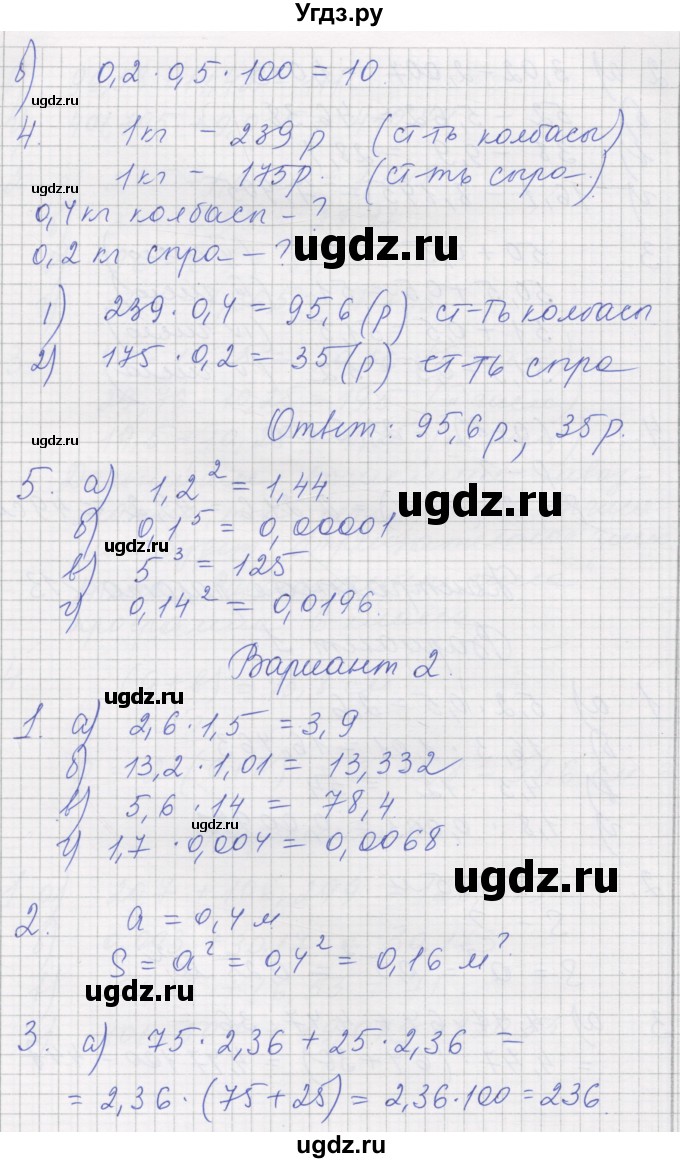 Угдз.ру
в) 0,2 · 0,5 · 100 = 10.
ugdz.ru
4. 1кг – 239 р (ст-ть колбасы)
1кг – 175р. (ст-ть сыра.)
ugdz.ru
0,4кг колбасы – ?
0,2 кг сыра – ?
ugdz.ru
1) 239 · 0,4 = 95,6 (р) ст-ть колбасы
ugdz.ru
2) 175 · 0,2 = 35 (р) ст-ть сыра
Ответ: 95,6 р., 35р.
ugdz.ru
5. а) 1,2² = 1,44.
ugdz.ru
б) 0,1⁵ = 0,00001
ugdz.ru
в) 5³ = 125
г) 0,14² = 0,0196.
Вариант 2.
ugdz.ru
1. а) 2,6 · 1,5 = 3,9
б) 13,2 · 1,01 = 13,332
в) 5,6 · 14 = 78,4
ugdz.ru
г) 1,7 · 0,004 = 0,0068.
ugdz.ru
2. a = 0,4 м
S = a² = 0,4² = 0,16 м²
ugdz.ru
3. а) 75 · 2,36 + 25 · 2,36 =
= 2,36 · (75 + 25) = 2,36 · 100 = 236.
ugdz.ru